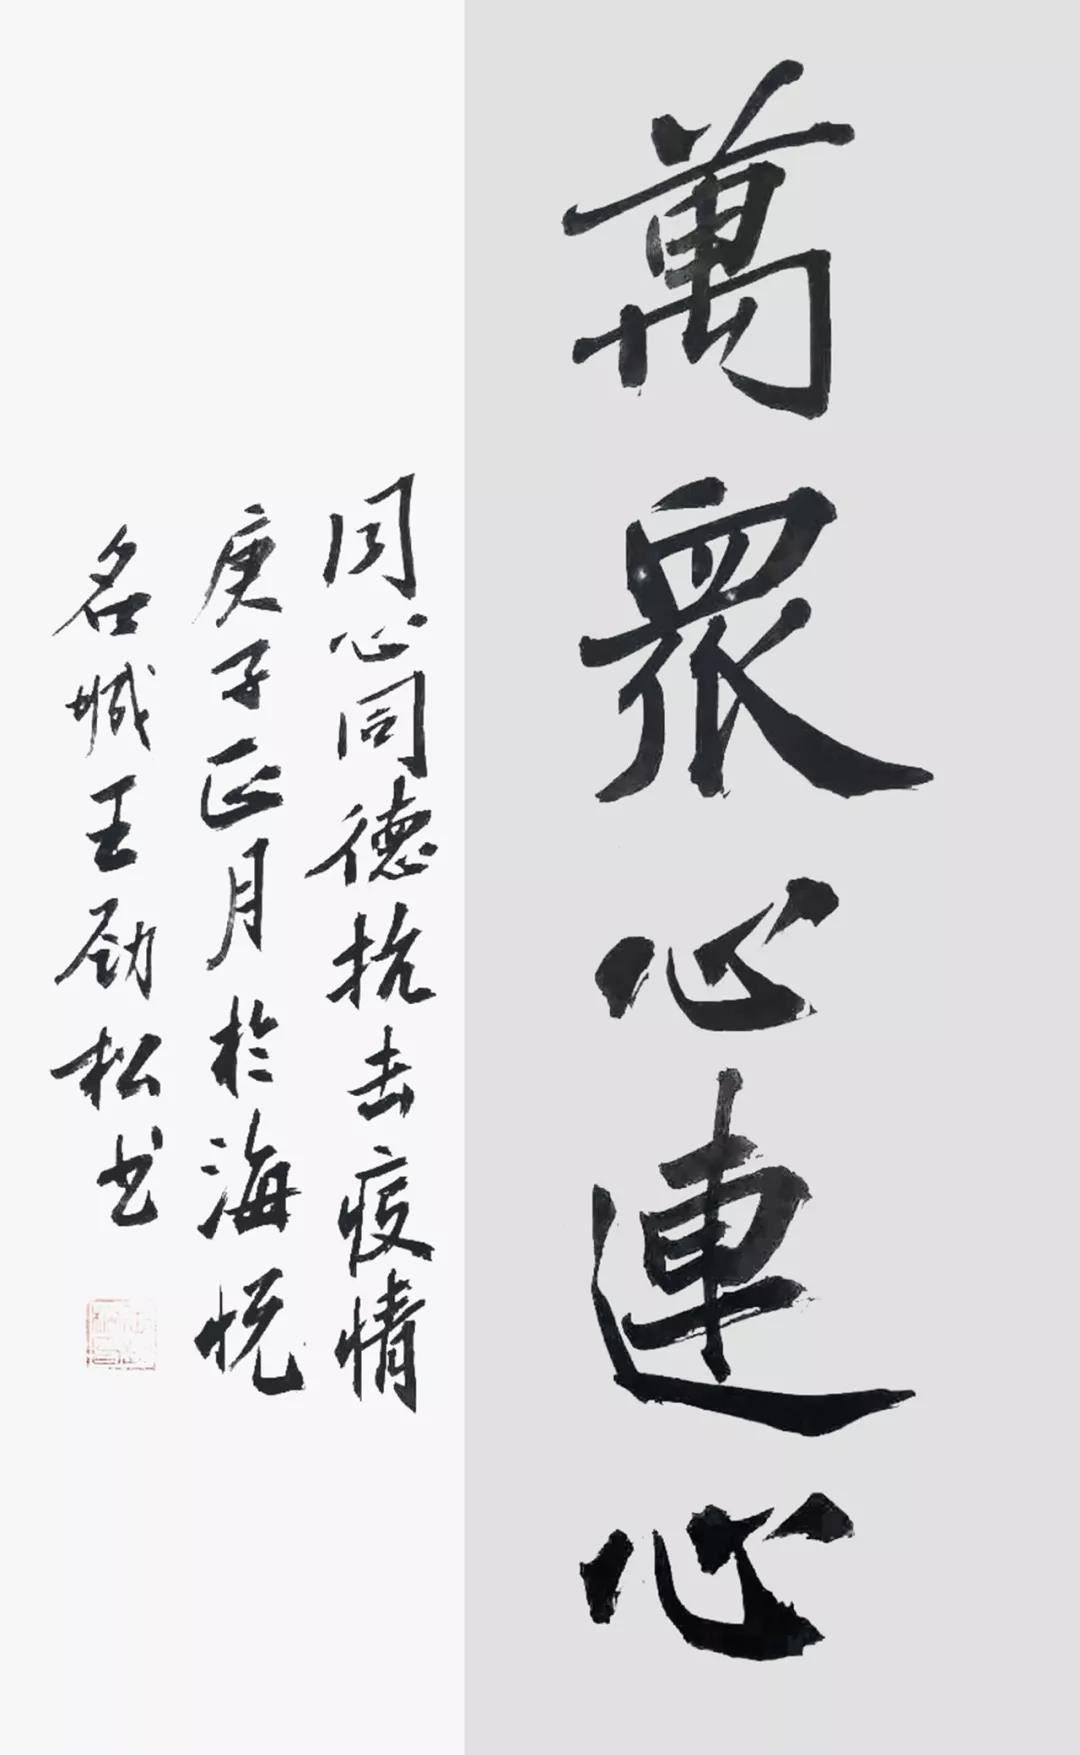 萬眾心連心
同心同德抗击疫情
庚子正月於海悦
名城王劲松书